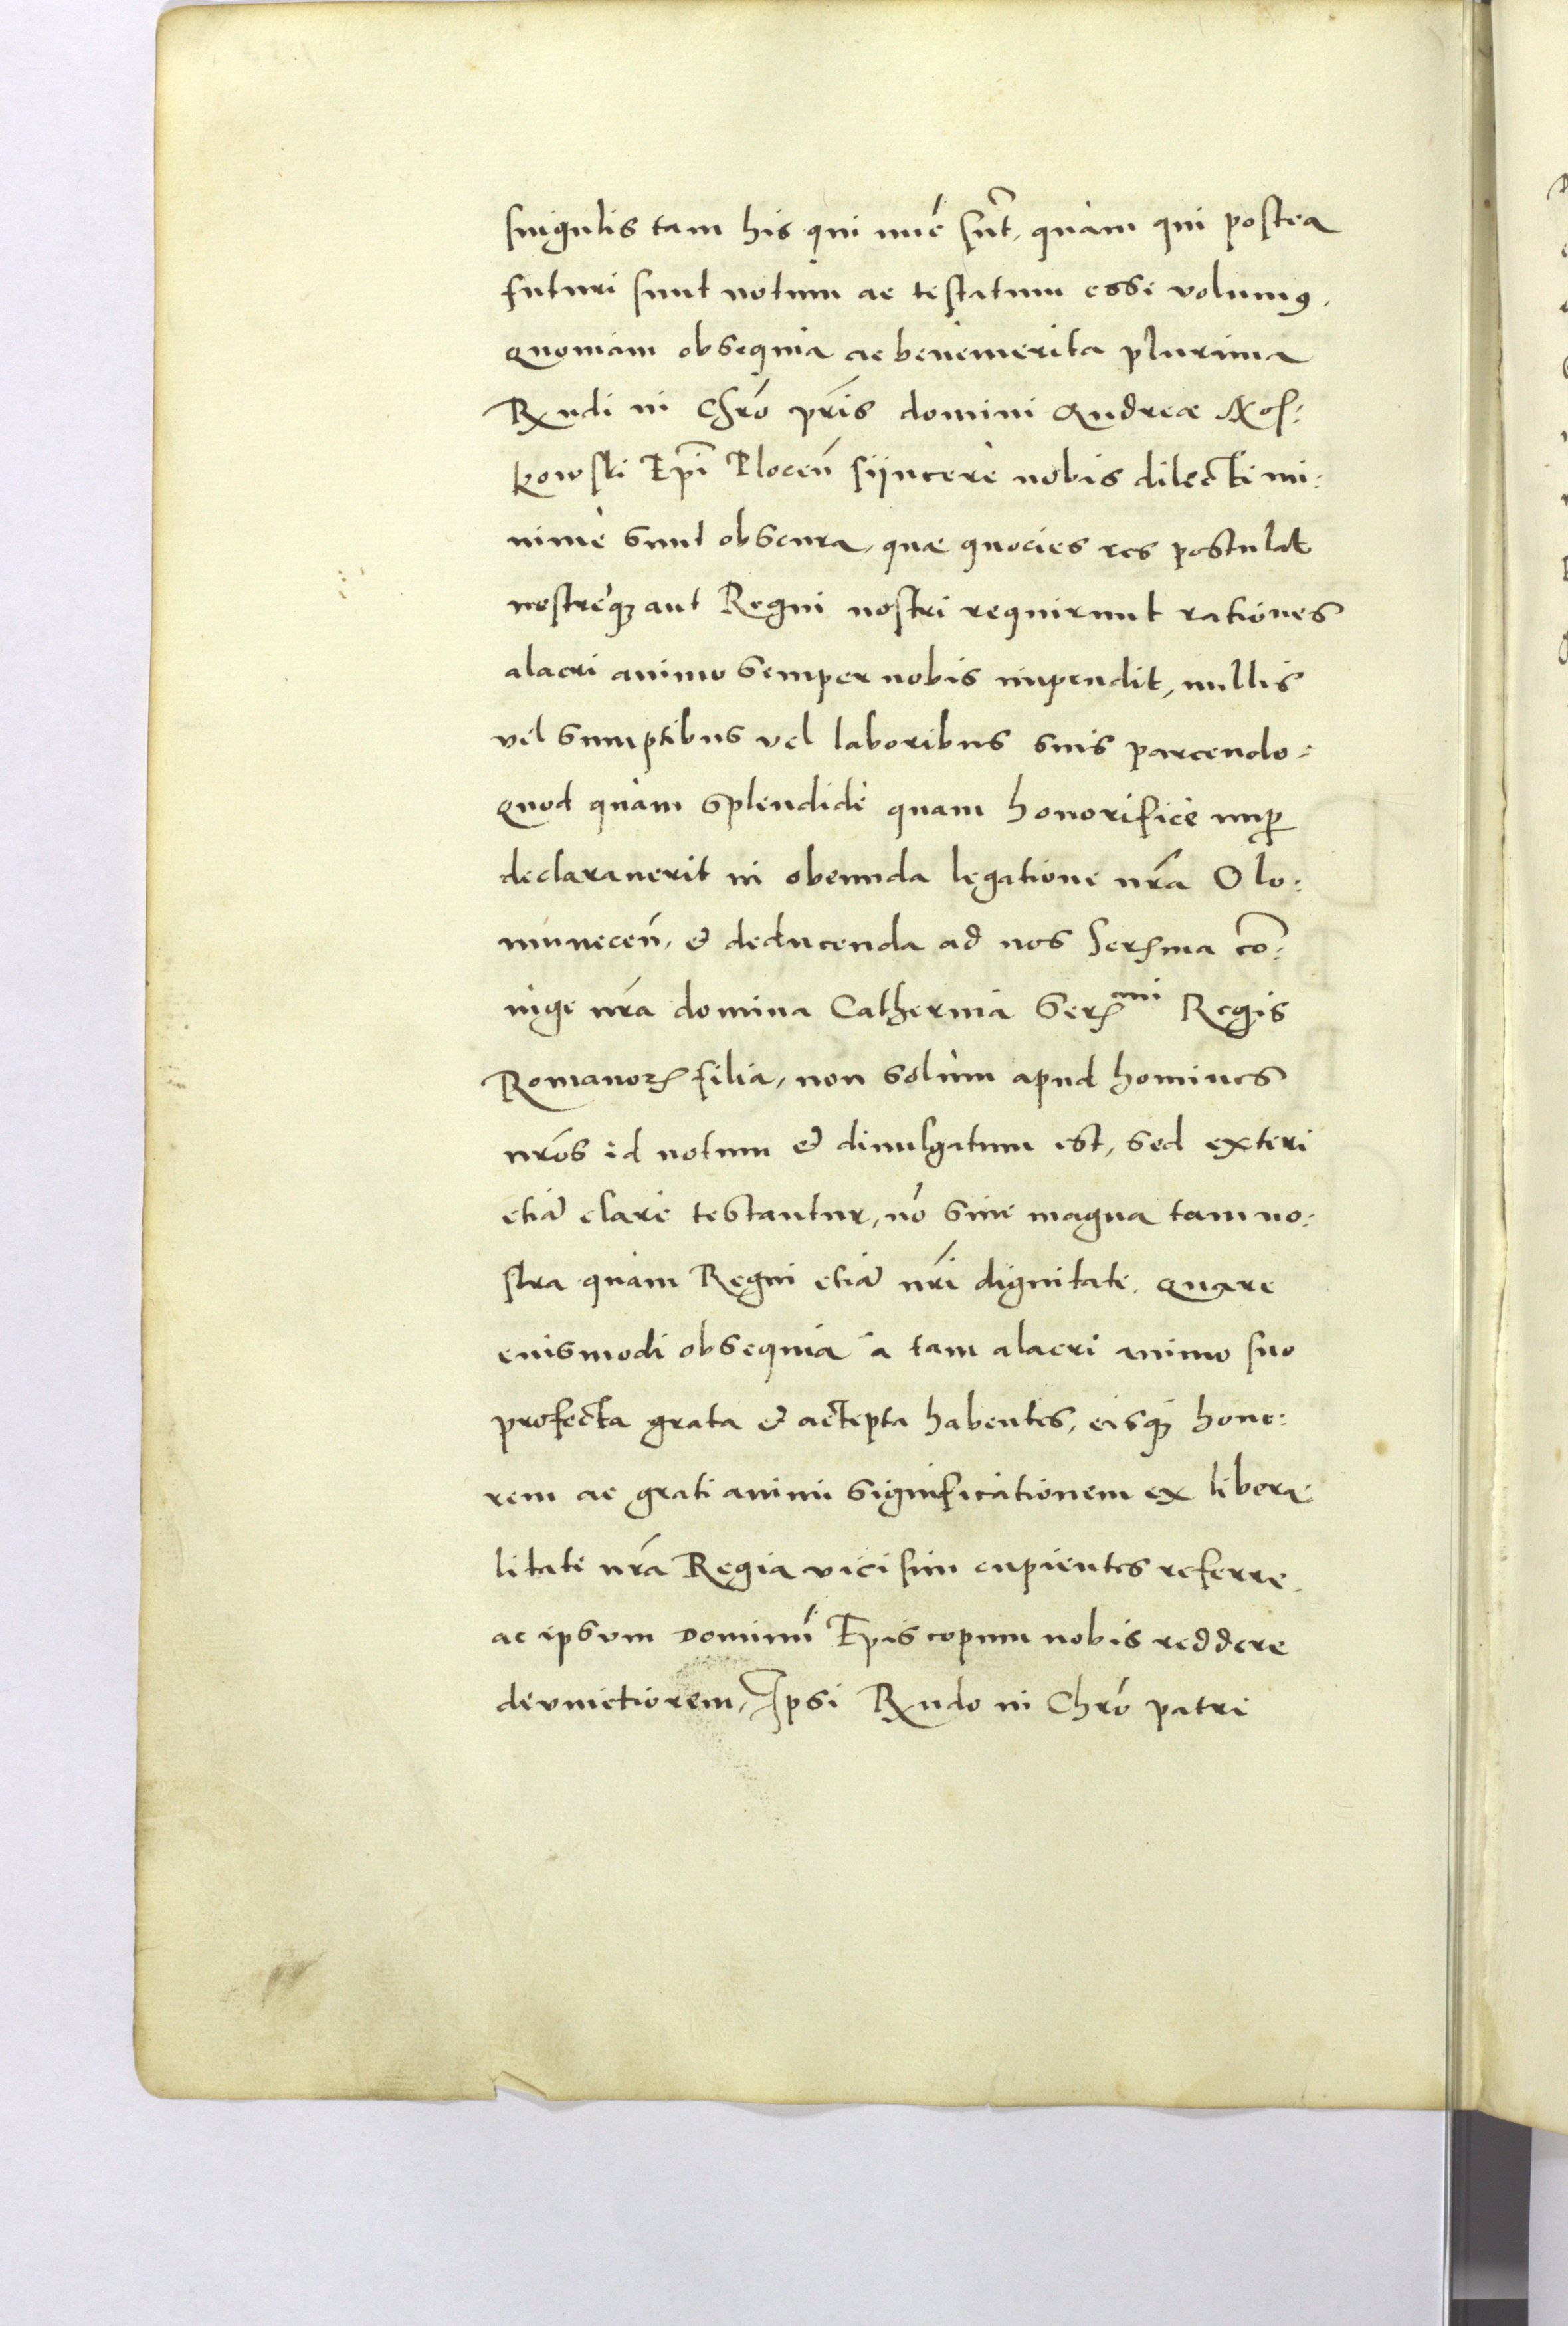 singulis tam his qui nũc sñt, quàm qui postea
futuri sunt notum ac testatum esse volumꝰ.
Quoniam obsequia ac benemerita plurima
Rndi in Chrõ pr̃is domini Andreæ Nos:
kowski Epĩ Plocen̄ sijncerè nobis dilecti mi:
nimè sunt obscura, quæ quocies res postulat
nostreqꝫ aut Regni nostri requirunt rationes
alacri animo semper nobis impendit, nullis
vel sumptibus vel laboribus suis parcendo:
Quod quàm splendidè quam honorificè nuꝑ
declarauerit in obeunda legatione nr̃a Olo:
municen̄, & deducenda ad nos Serꝫma cõ:
iuge nr̃a domina Catherina Serꝫmi Regis
Romanorꝫ filia, non solùm apud homines
nr̃os id notum & diuulgatum est, sed exteri
etiã clarè testantur, nõ sine magna tam no:
stra quàm Regni etiã nr̃i dignitate. Quare
eiusmodi obsequia à tam alacri animo suo
profecta grata & acēpta habentes, eisqꝫ hono:
rem ac grati animi significationem ex libera:
litate nr̃a Regia vicisim cupientes referre,
ac ipsum Dominũ Episcopum nobis reddere
deuinctiorem, Ipsi Rndo in Chrõ patri